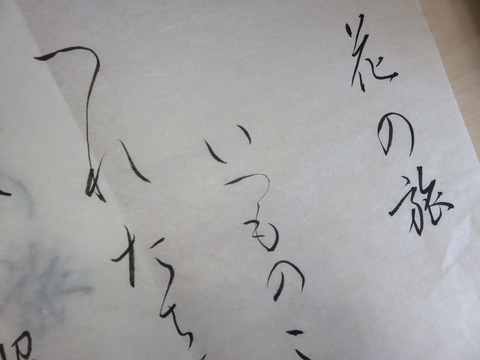 花の旅
いつもの
つれたち